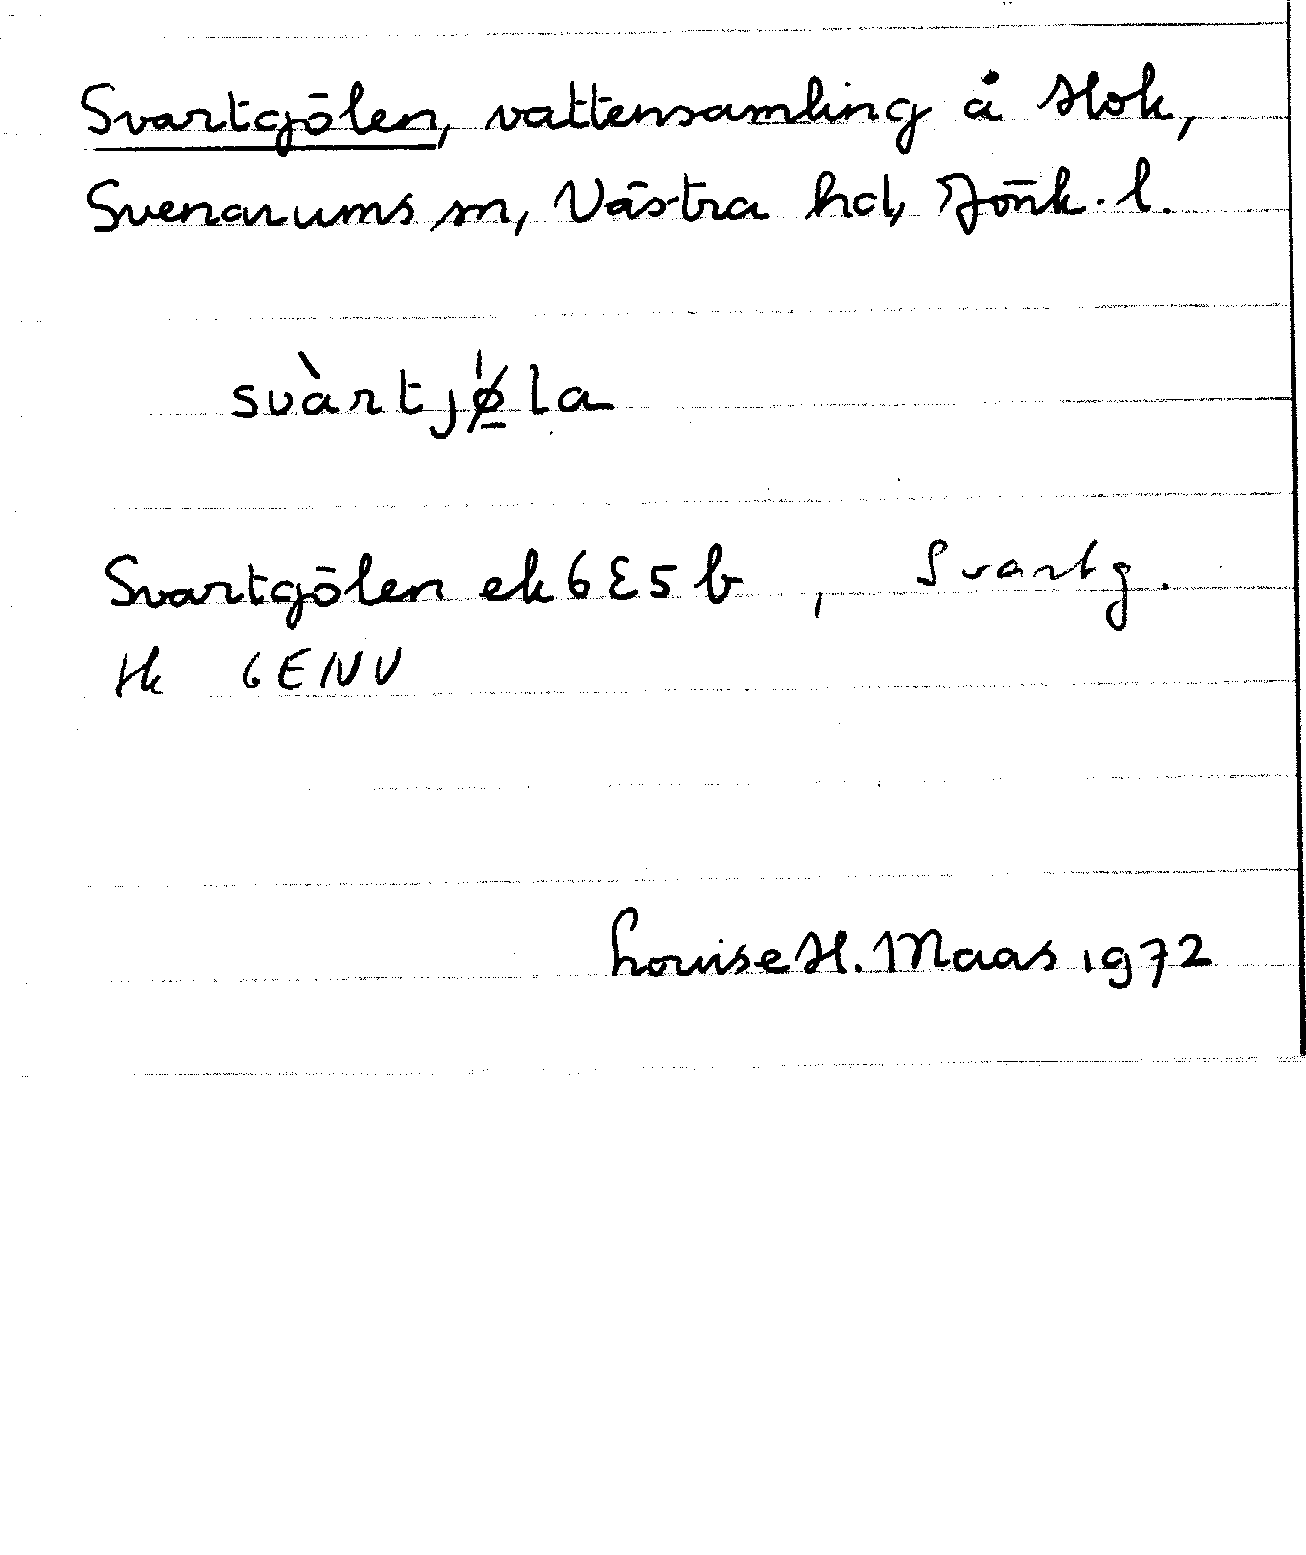 Svartgölen, vattensamling å Hok,
Svenarums sn, Västra hd, Jönk. l.
svàrtjø̱la
Svartgölen ek 6E5b, Svartg.
tk 6ENV
Louise H. Maas 1972